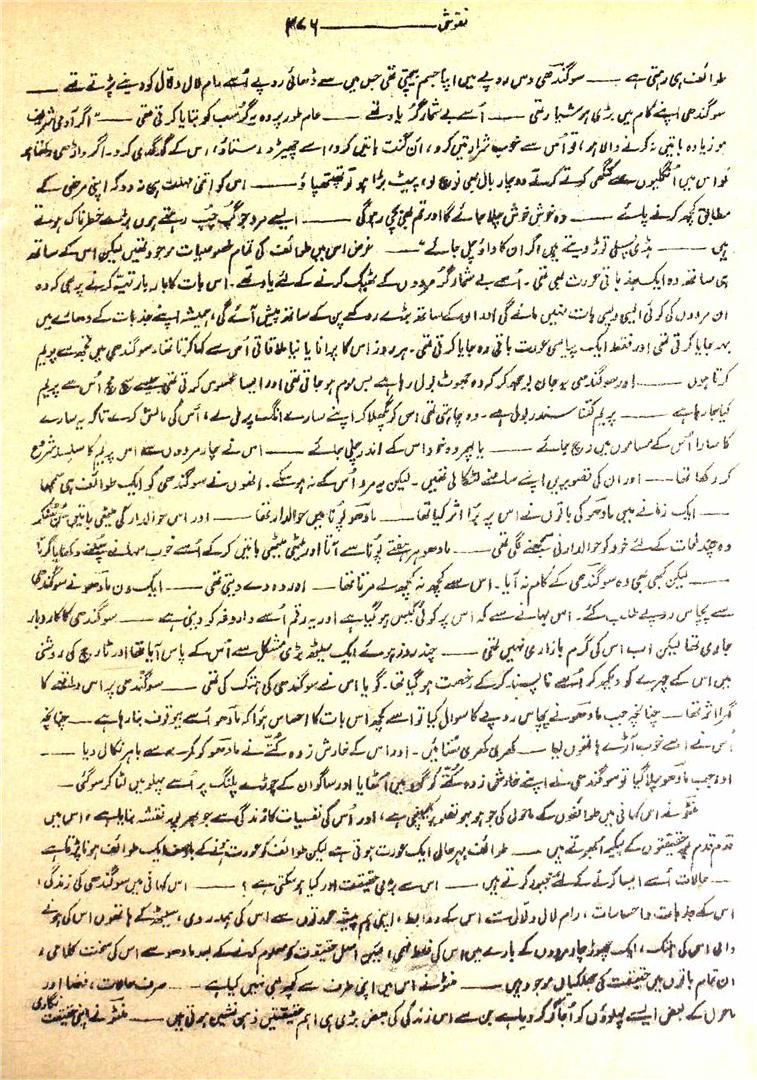 نقوش ــــــــ ۳۷۶
طوائف ہی رہتی ہے ــــ سوگندھی دس روپے میں اپنا جسم بیچتی تھی جس میں سے ڈھائی روپے اُسے رام لال دلّال کو دینے پڑتے تھے ــــ
سوگندھی اپنے کام میں بڑی ہوشیار تھی ــــ اُسے بے شمار گُر یاد تھے ــــ عام طور پر وہ یہ گُر سب کو بتایا کرتی تھی ــــ "اگر آدمی شریف
ہو زیادہ باتیں نہ کرنے والا ہو، تو اُس سے خوب شرارتیں کرو، ان گنت باتیں کرو، اسے چھیڑو، ستاؤ، اس کے گدگدی کرو۔ اگر داڑھی رکھتا ہو
تو اس میں اُنگلیوں سے کنگھی کرتے کرتے دو چار بال بھی نوچ لو، پیٹ بڑا ہو تو تھپتھپاؤ ــــ اس کو اتنی مہلت ہی نہ دو کہ اپنی مرضی کے
مطابق کچھ کرنے پائے ــــ وہ خوش خوش چلا جائے گا اور تم بھی بچی رہو گی ــــ ایسے مرد جو گپ چپ رہتے ہوں بڑے خطرناک ہوتے
ہیں ــــ ہڈی پسلی توڑ دیتے ہیں اگر ان کا داؤ چل جائے" ــــ غرض اس میں طوائف کی تمام خصوصیات موجود تھیں لیکن اس کے ساتھ
ہی ساتھ وہ ایک جذباتی عورت بھی تھی۔ اُسے بے شمار گُر مردوں کے ٹھیک کرنے کے لئے یاد تھے۔ اس بات کا بار بار تہیہ کرنے پر بھی کہ وہ
ان مردوں کی کوئی ایسی ویسی بات نہیں مانے گی اور ان کے ساتھ بڑے روکھے پن کے ساتھ پیش آئے گی، ہمیشہ اپنے جذبات کے دھارے میں
بہہ جایا کرتی تھی اور فقط ایک پیاسی عورت باقی رہ جایا کرتی تھی۔ ہر روز اس کا پرانا یا نیا ملاقاتی اُس سے کہا کرتا تھا، سوگندھی میں تجھ سے پریم
کرتا ہوں ــــ اور سوگندھی یہ جان بوجھ کر کہ وہ جھوٹ بول رہا ہے بس موم ہو جاتی تھی اور ایسا محسوس کرتی تھی جیسے سچ مچ اُس سے پریم
کیا جا رہا ہے ــــ پریم کتنا سندر بول ہے ــــ وہ چاہتی تھی اس کو پگھلا کر اپنے سارے انگ پر مل لے، اُس کی مالش کرے تاکہ یہ سارے
کا سارا اُس کے مساموں میں رچ جائے ــــ یا پھر وہ خود اس کے اندر چلی جائے ــــ اس نے چار مردوں سے اس پریم کا سلسلہ شروع
کر رکھا تھا ــــ اور ان کی تصویریں اپنے سامنے لٹکا لی تھیں۔ لیکن یہ مرد اُس کے نہ ہو سکے۔ انھوں نے سوگندھی کو ایک طوائف ہی سمجھا
ــــ ایک زمانے میں مادھو کی باتوں نے اس پر بڑا اثر کیا تھا ــــ مادھو پُونا میں حوالدار تھا ــــ اور اس حوالدار کی میٹھی باتیں سُن سُنکر
وہ چند لمحات کے لئے خود کو حوالدارنی سمجھنے لگی تھی ــــ مادھو ہر مہینے پُونا سے آتا اور میٹھی میٹھی باتیں کر کے اُسے خوب سہانے سپنے دکھایا کرتا
ــــ لیکن کبھی بھی وہ سوگندھی کے کام نہ آیا۔ اس سے کچھ نہ کچھ لے مرتا تھا ــــ اور وہ دے دیتی تھی ــــ ایک دن مادھو نے سوگندھی
سے پچاس روپے طلب کئے۔ اس بہانے سے کہ اس پر کوئی کیس ہو گیا ہے اور یہ رقم اُسے داروغہ کو دینی ہے ــــ سوگندھی کا کاروبار
جاری تھا لیکن اب اس کی گرم بازاری نہیں تھی ــــ چند روز ہوئے ایک سیٹھ بڑی مشکل سے اُس کے پاس آیا تھا اور ٹارچ کی روشنی
میں اس کے چہرے کو دیکھ کر اُسے ناپسند کر کے رخصت ہو گیا تھا۔ گویا اس نے سوگندھی کی ہتک کی تھی ــــ سوگندھی پر اس واقعے کا
گہرا اثر تھا ــــ چنانچہ جب مادھو نے پچاس روپے کا سوال کیا تو اُسے کچھ اس بات کا احساس ہوا کہ مادھو اُسے بیوقوف بنا رہا ہے ــــ چنانچہ
اُس نے اُسے خوب آڑے ہاتھوں لیا ــــ کھری کھری سُنائیں۔ اور اس کے خارش زدہ کُتے نے مادھو کو کمرے سے باہر نکال دیا ــــ
اور جب مادھو چلا گیا تو سوگندھی نے اپنے خارش زدہ کُتے کو گود میں اُٹھایا اور ساگوان کے چوڑے پلنگ پر اُسے پہلو میں لٹا کر سو گئی ــــ
منٹو نے اس کہانی میں طوائفوں کے ماحول کی جو ہو بہو تصویر کھینچی ہے، اور اُس کی نفسیات کا زندگی سے جو بھرپور نقشہ بنایا ہے، اس میں
قدم قدم پر حقیقتوں کے پیکر اُبھرتے ہیں ــــ طوائف بہر حال ایک عورت ہوتی ہے لیکن طوائف کو عورت ہونے کے باوصف ایک طوائف ہونا پڑتا ہے
ــــ حالات اُسے ایسا کرنے کے لئے مجبور کرتے ہیں ــــ اس سے بڑی حقیقت اور کیا ہو سکتی ہے؟ ــــ اس کہانی میں سوگندھی کی زندگی،
اس کے جذبات و احساسات، رام لال دلّال سے اس کے روابط، اپنی ہم پیشہ عورتوں سے اس کی ہمدردی، سیٹھ کے ہاتھوں اس کی ہونے
والی اس کی ہتک، ایک چھوڑ چار مردوں کے بارے میں اس کی غلط فہمی، لیکن اصل حقیقت کو معلوم کرنے کے بعد مادھو سے اس کی سخت کلامی،
ان تمام باتوں میں حقیقت کی جھلکیاں موجود ہیں ــــ منٹو نے اس میں اپنی طرف سے کچھ بھی نہیں کیا ہے ــــ صرف حالات، فضا اور
ماحول کے بعض ایسے پہلوؤں کو اُجاگر کر دیا ہے جن سے اس زندگی کی بعض بڑی ہی اہم حقیقتیں ذہن نشین ہوتی ہیں ــــ منٹو نے اپنی حقیقت نگاری